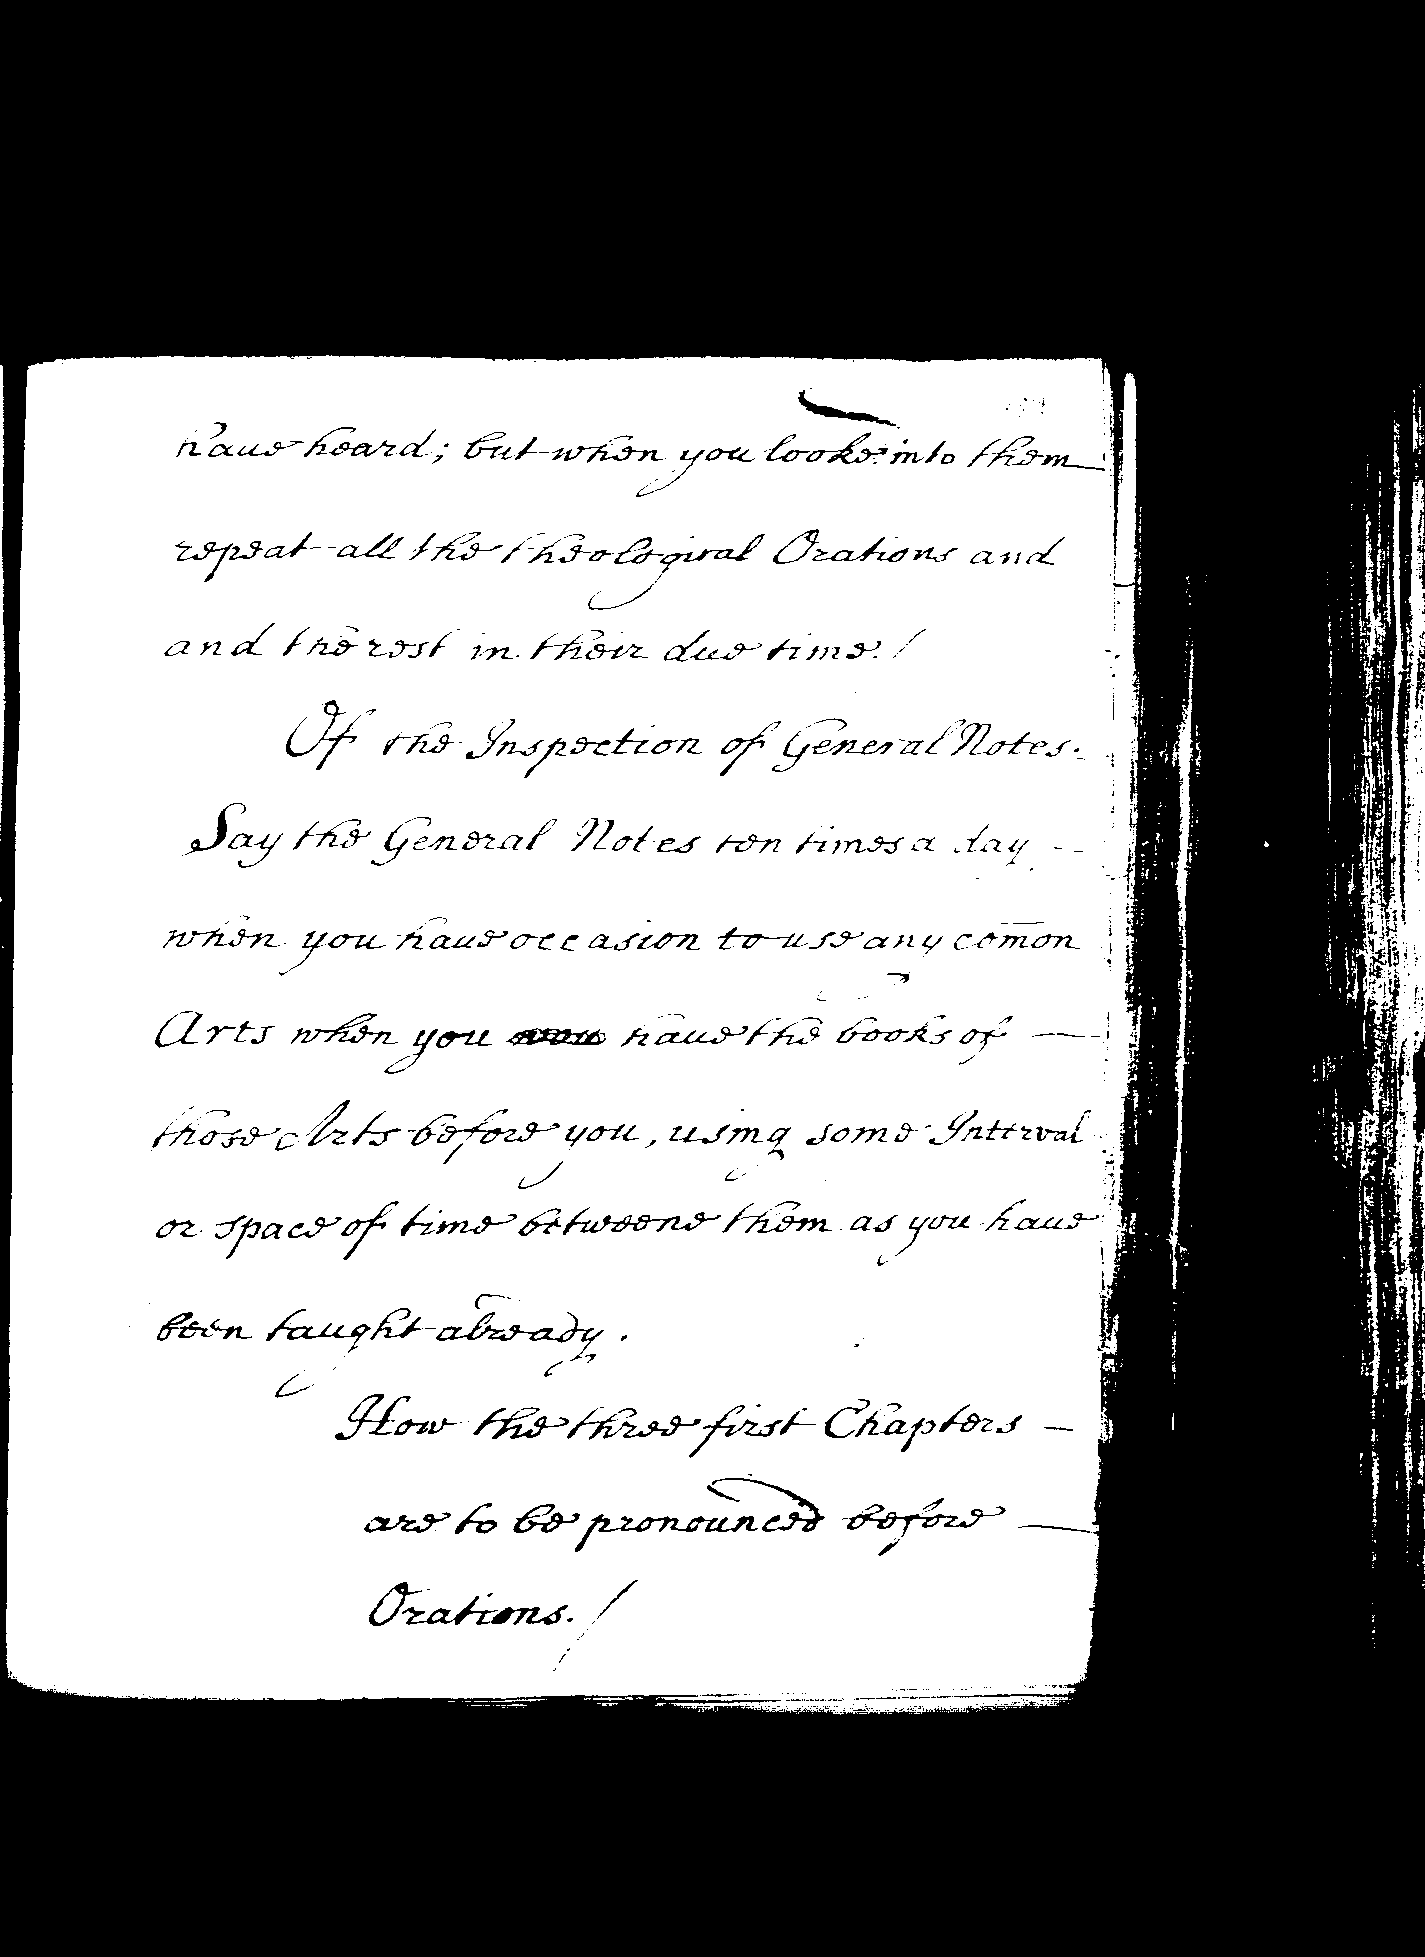 haue heard; but when you looke into them
repeat all the theological Orations and
and the rest in their due time./
Of the Inspection of General Notes.
Say the General Notes ten times a day
when you haue occasion to use any com̄on
Arts when you haue the books of —
those Arts before you, using some Interval
or space of time betweene them as you haue
been taught already.
How the three first Chapters —
are to be pronounced before —
Orations./